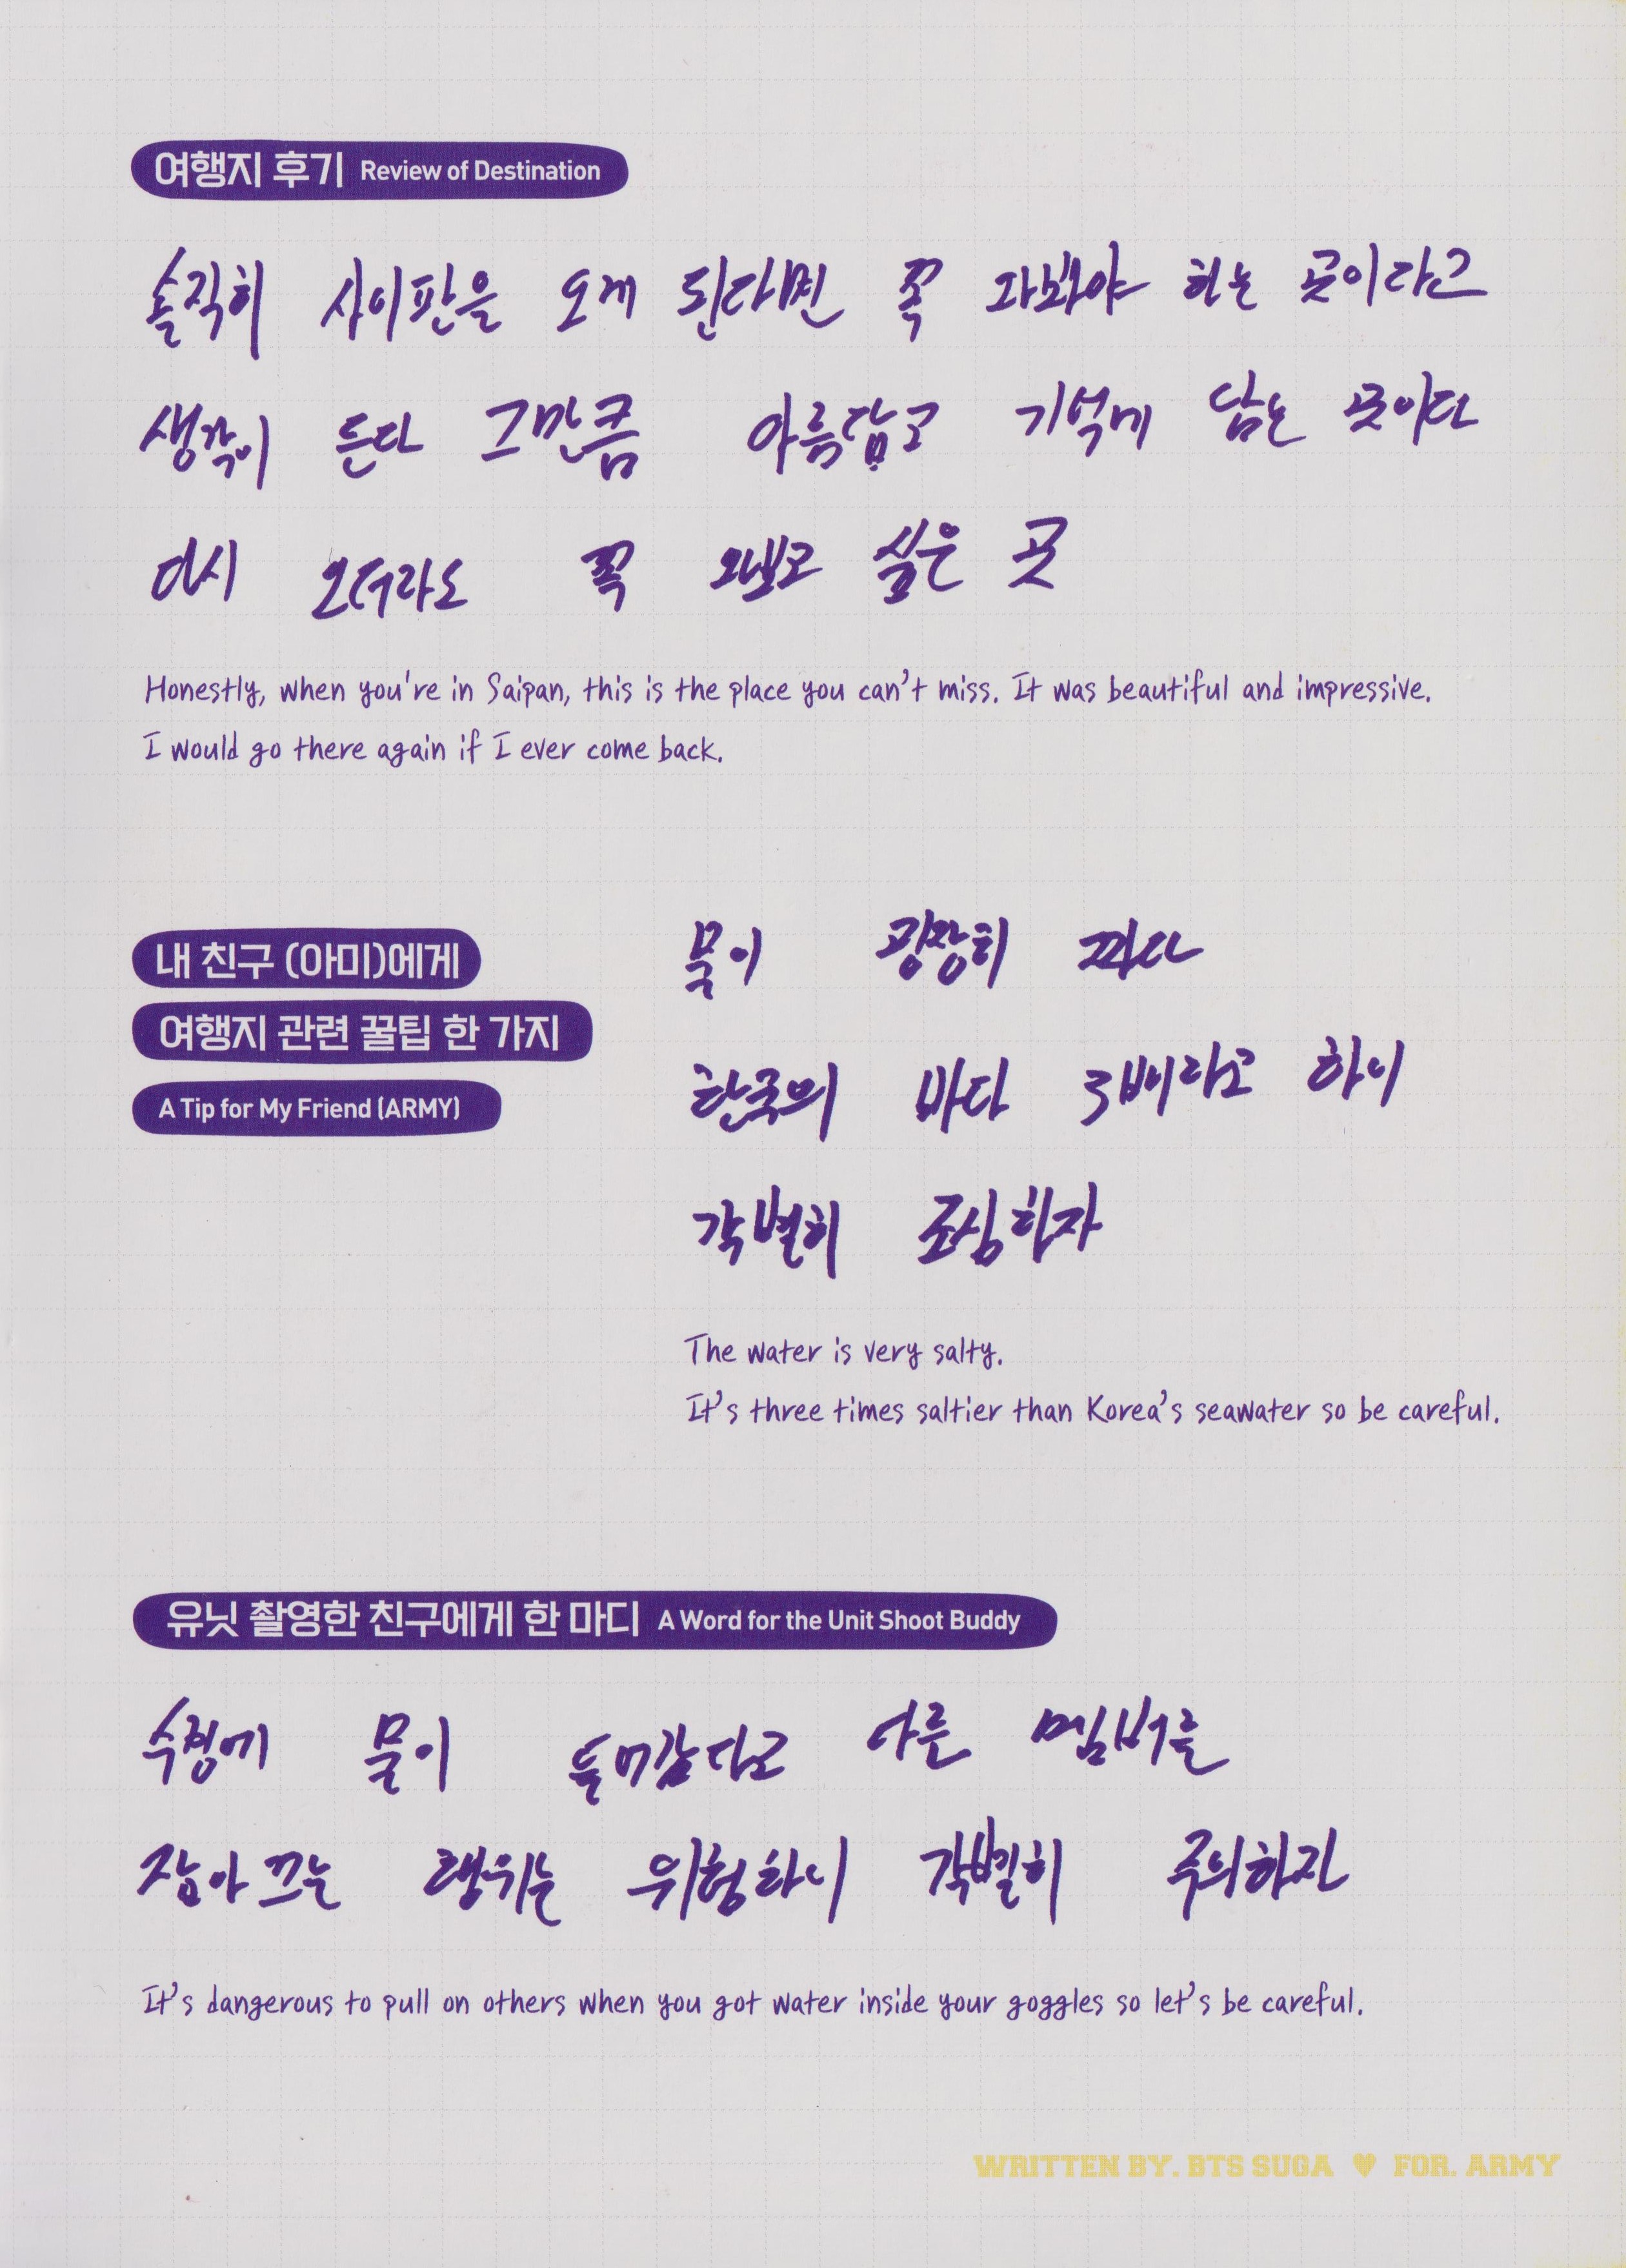 여행지 후기 Review of Destination
솔직히 사이판을 오게 된다면 꼭 와봐야 하는 곳이라고
생각이 든다 그만큼 아름답고 기억에 담는 곳이다
다시 오더라도 꼭 오고 싶은 곳
Honestly, when you're in Saipan, this is the place you can't miss. It was beautiful and impressive.
I would go there again if I ever come back.
내 친구 (아미)에게
여행지 관련 꿀팁 한 가지
A Tip for My Friend (ARMY)
물이 굉장히 짜다
한국의 바다 3배라고 하니
각별히 조심하자
The water is very salty.
It's three times saltier than Korea's seawater so be careful.
유닛 촬영한 친구에게 한 마디 A Word for the Unit Shoot Buddy
수경에 물이 들어갔다고 다른 멤버를
잡아 끄는 행위는 위험하니 각별히 주의하자
It's dangerous to pull on others when you got water inside your goggles so let's be careful.
WRITTEN BY. BTS SUGA ♥ FOR. ARMY